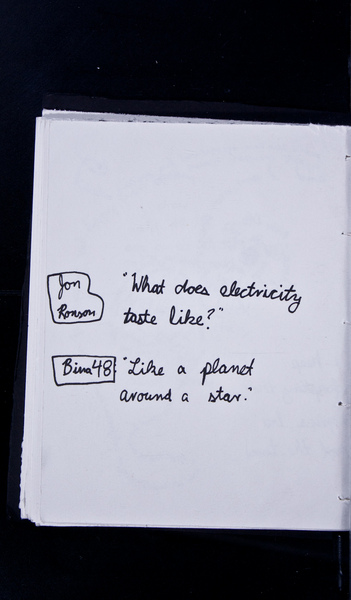 Jon
Ronson
"What does electricity
taste like?"
Bina48: "Like a planet
around a star."